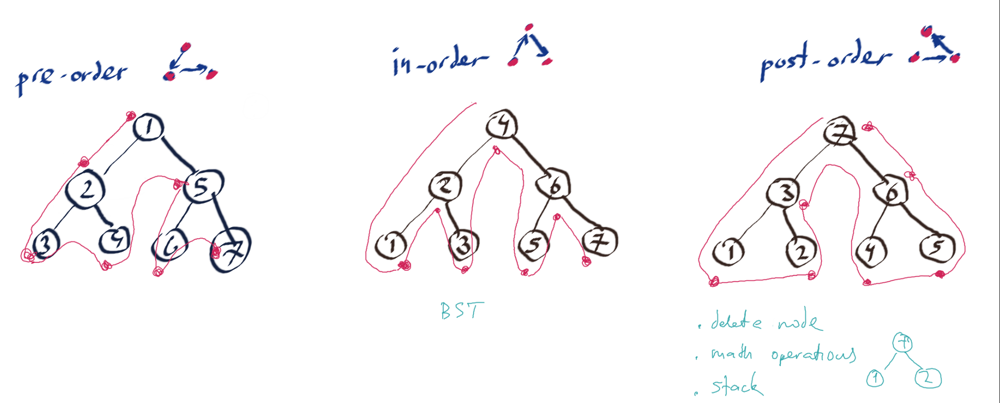 pre-order
1
2 5
3 4 6 7
in-order
4
2 6
1 3 5 7
BST
post-order
7
3 6
1 2 4 5
. delete node
. math operations
. stack
7
1 2